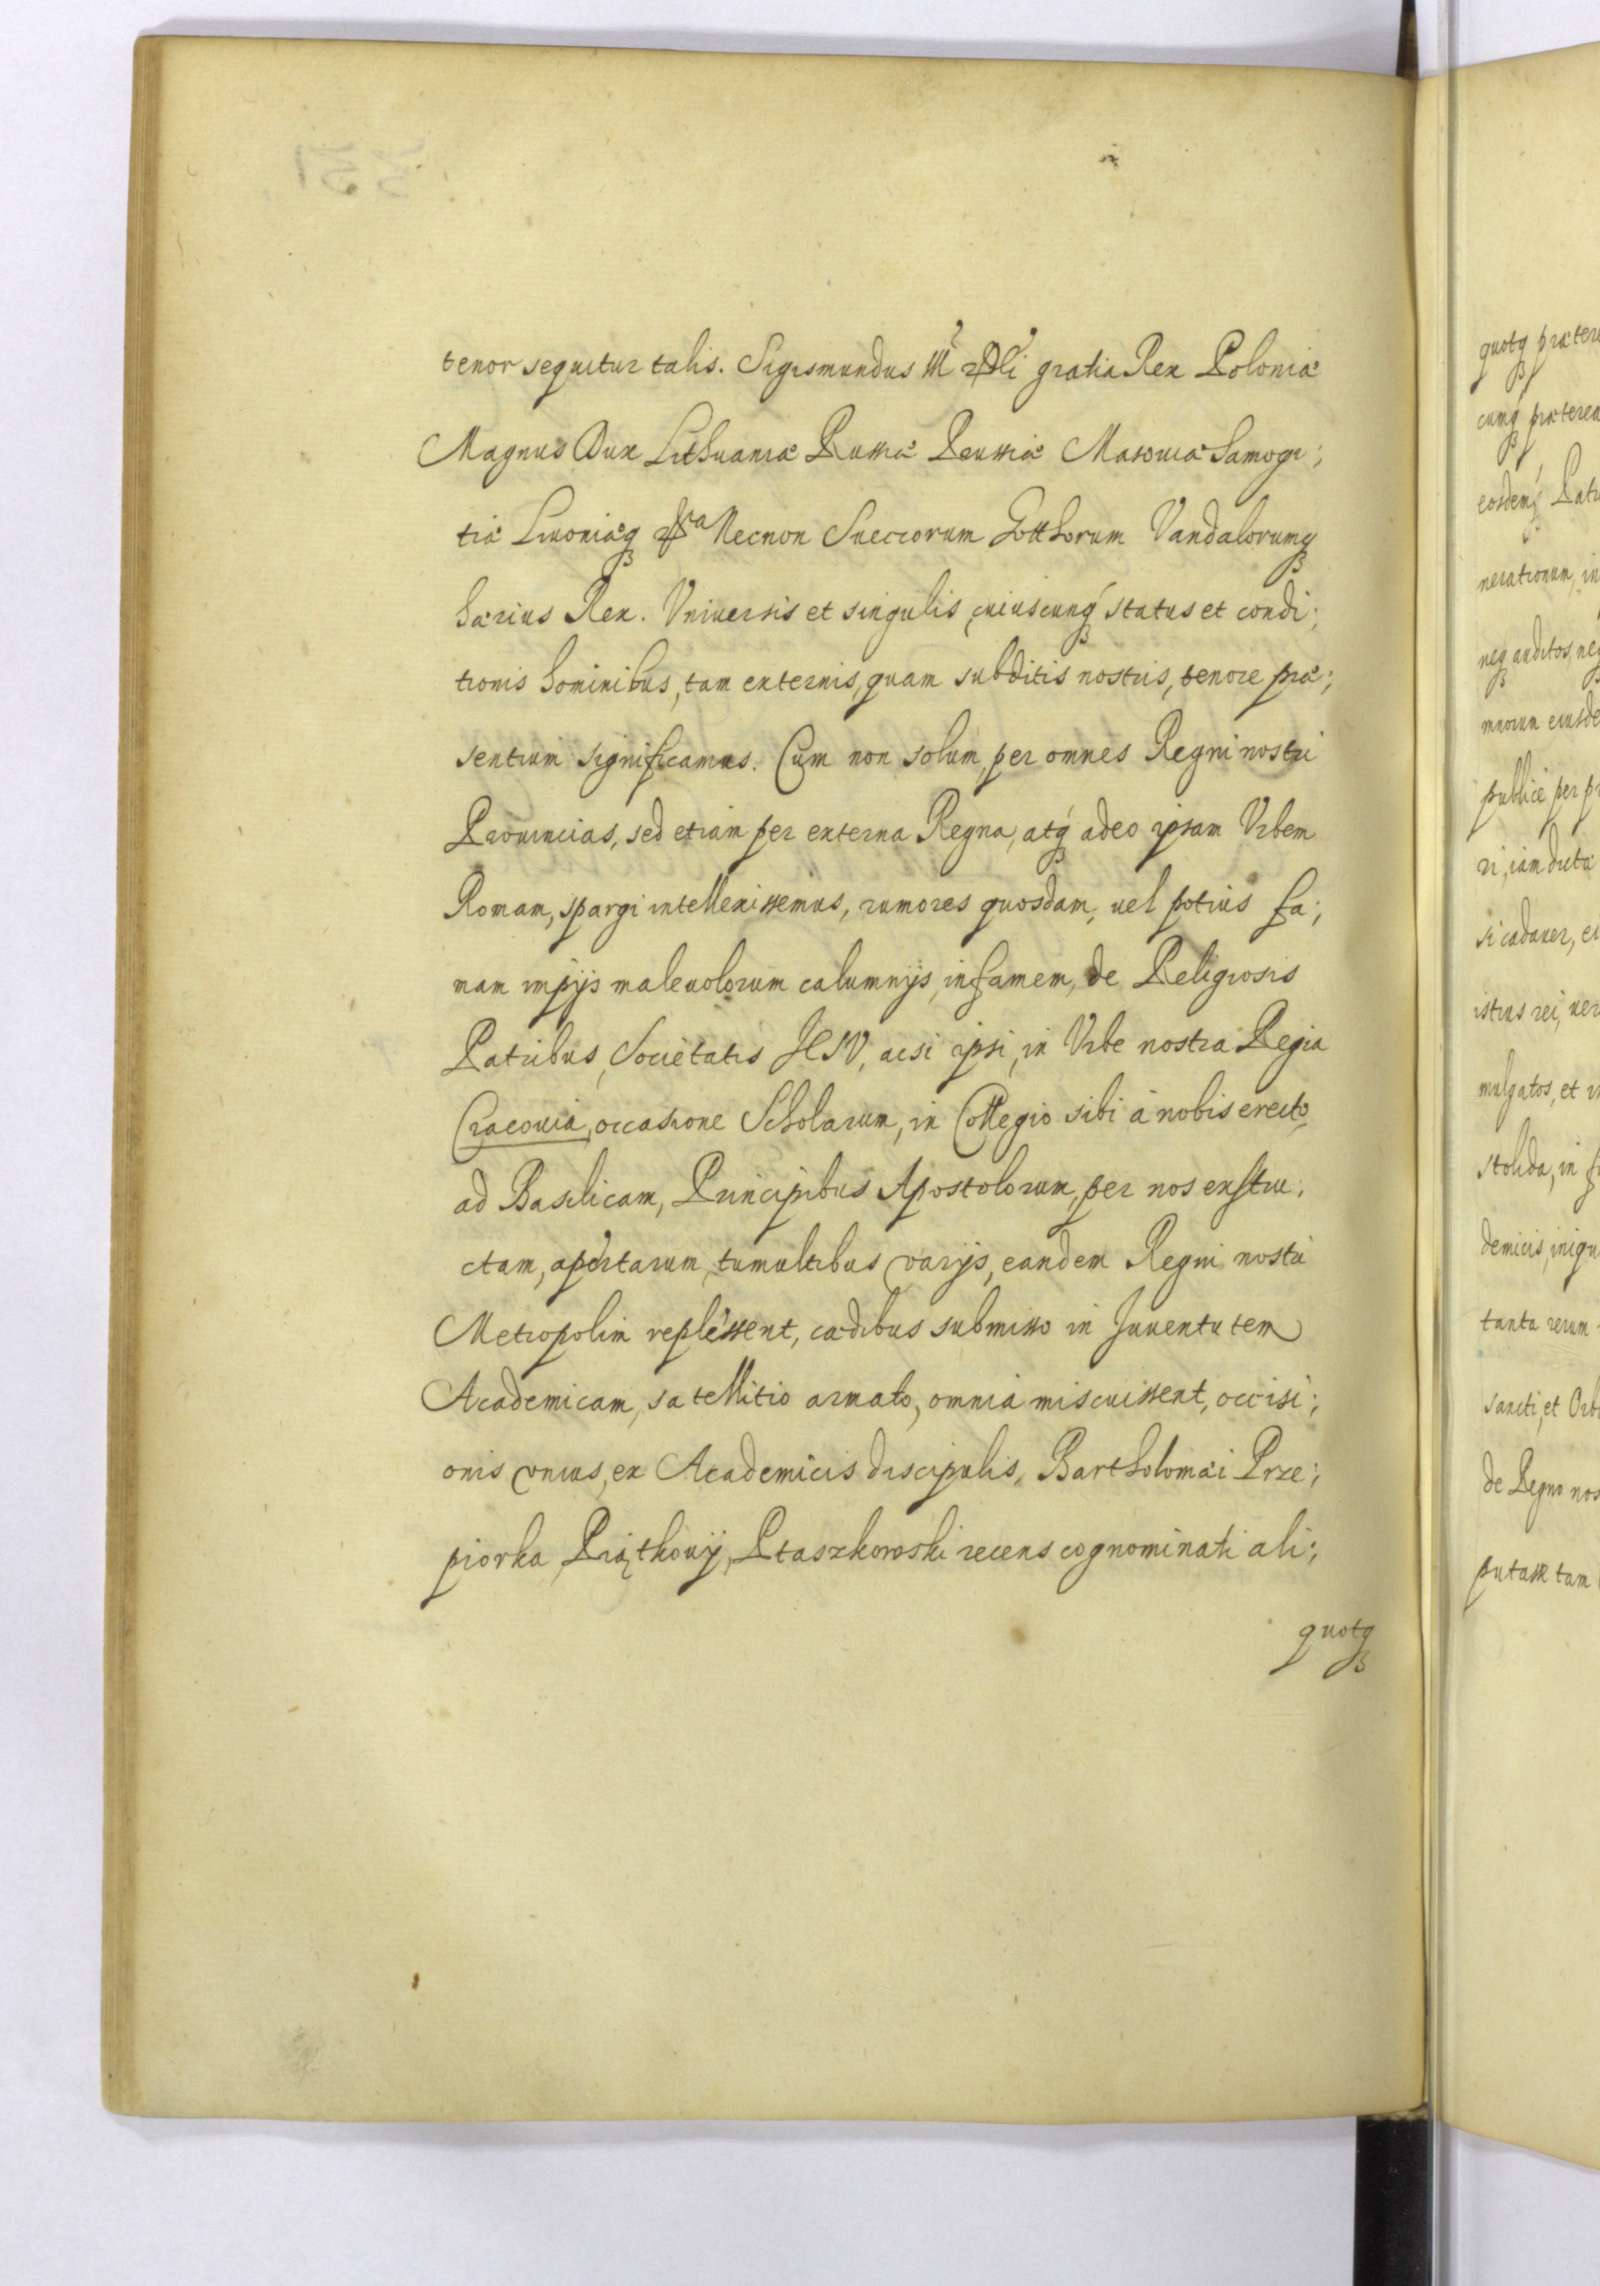 tenor sequitur talis. Sigismundus III Dei gratia Rex Poloniæ
Magnus Dux Lithuaniæ Russiæ Prussiæ Masouiæ Samogi;
tiæ Liuoniæq Necnon Sueccorum Gotthorum Vandalorumq
hærius Rex. Vniuersis et singulis, cuiuscunq status et condi;
tionis hominibus, tam externis, quam subditis nostris, tenore præ;
sentium significamus. Cum non solum, per omnes Regni nostri
Prouincias, sed etiam per externa Regna, atq adeo ipsam Vrbem
Romam, spargi intellexissemus, rumores quosdam, uel potius fa;
mam impijs maleuolorum calumnijs, infamem, de Religiosis
Patribus, Societatis JESV, acsi ipsi, in Vrbe nostra Regia
Cracouia, occasione Scholarum, in Collegio sibi à nobis erecto,
ad Basilicam, Principibus Apostolorum, per nos exstru;
ctam, apertarum, tumultibus varijs, eandem Regni nostri
Metropolim replessent, cædibus submisso in Juuentutem
Academicam, satellitio armato, omnia miscuissent, occisi;
onis vnius, ex Academicis discipulis, Bartholomæi Prze;
piorka, Piątkouij, Ptaszkowski recens cognominati ali;
quotq
quotq præter
cumq præterea
eosdemq Patr
nerationum, in
neq auditos, neq
muorum eiusde
publicè per pr
ri, iam dicta
si cadauer, ei
istius rei, uer
mulgatos, et in
stolida, in f
demicis, iniqu
tanta rerum
sancti, et Orb
de Regno nos
putasse tam